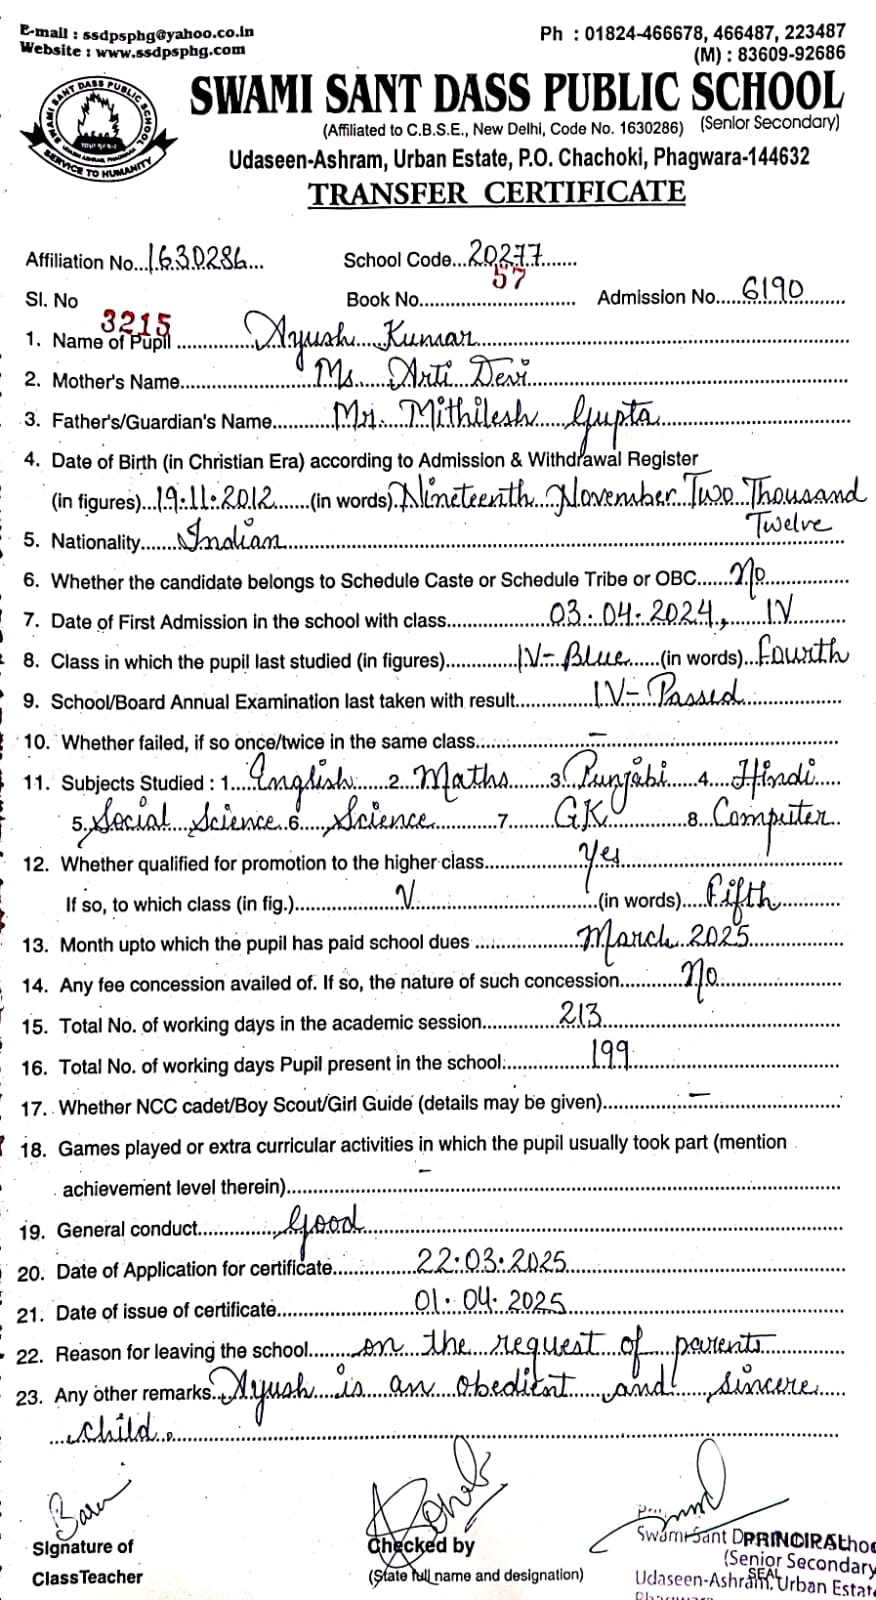 E-mail : ssdpsphg@yahoo.co.in
Website : www.ssdpsphg.com
Ph : 01824-466678, 466487, 223487
(M) : 83609-92686
SWAMI SANT DASS PUBLIC SCHOOL
SWAMI SANT DASS PUBLIC SCHOOL
SERVICE TO HUMANITY
(Affiliated to C.B.S.E., New Delhi, Code No. 1630286) (Senior Secondary)
Udaseen-Ashram, Urban Estate, P.O. Chachoki, Phagwara-144632
TRANSFER CERTIFICATE
Affiliation No...1630286... School Code...20277...
Sl. No 3215 Book No...57... Admission No...6190...
1. Name of Pupil...Ayush Kumar...
2. Mother's Name...Ms. Arti Devi...
3. Father's/Guardian's Name...Mr. Mithilesh Gupta...
4. Date of Birth (in Christian Era) according to Admission & Withdrawal Register
(in figures)...19.11.2012...(in words) Nineteenth November Two Thousand
Twelve
5. Nationality...Indian...
6. Whether the candidate belongs to Schedule Caste or Schedule Tribe or OBC...No...
7. Date of First Admission in the school with class...03.04.2024, IV...
8. Class in which the pupil last studied (in figures)...IV-Blue...(in words)...Fourth
9. School/Board Annual Examination last taken with result...IV-Passed...
10. Whether failed, if so once/twice in the same class...–...
11. Subjects Studied : 1...English...2...Maths...3...Punjabi...4...Hindi...
5. Social Science 6...Science...7...GK...8...Computer...
12. Whether qualified for promotion to the higher class...Yes...
If so, to which class (in fig.)...V...(in words)...Fifth...
13. Month upto which the pupil has paid school dues...March 2025...
14. Any fee concession availed of. If so, the nature of such concession...No...
15. Total No. of working days in the academic session...213...
16. Total No. of working days Pupil present in the school...199...
17. Whether NCC cadet/Boy Scout/Girl Guide (details may be given)...–...
18. Games played or extra curricular activities in which the pupil usually took part (mention
achievement level therein)...–...
19. General conduct...Good...
20. Date of Application for certificate...22.03.2025...
21. Date of issue of certificate...01.04.2025...
22. Reason for leaving the school...on the request of parents
23. Any other remarks...Ayush is an obedient and sincere
child.
Signature of
ClassTeacher
Checked by
(State full name and designation)
PRINCIPAL
SEAL
Swami Sant
(Senior Secondary
Udaseen-Ashram, Urban Estat